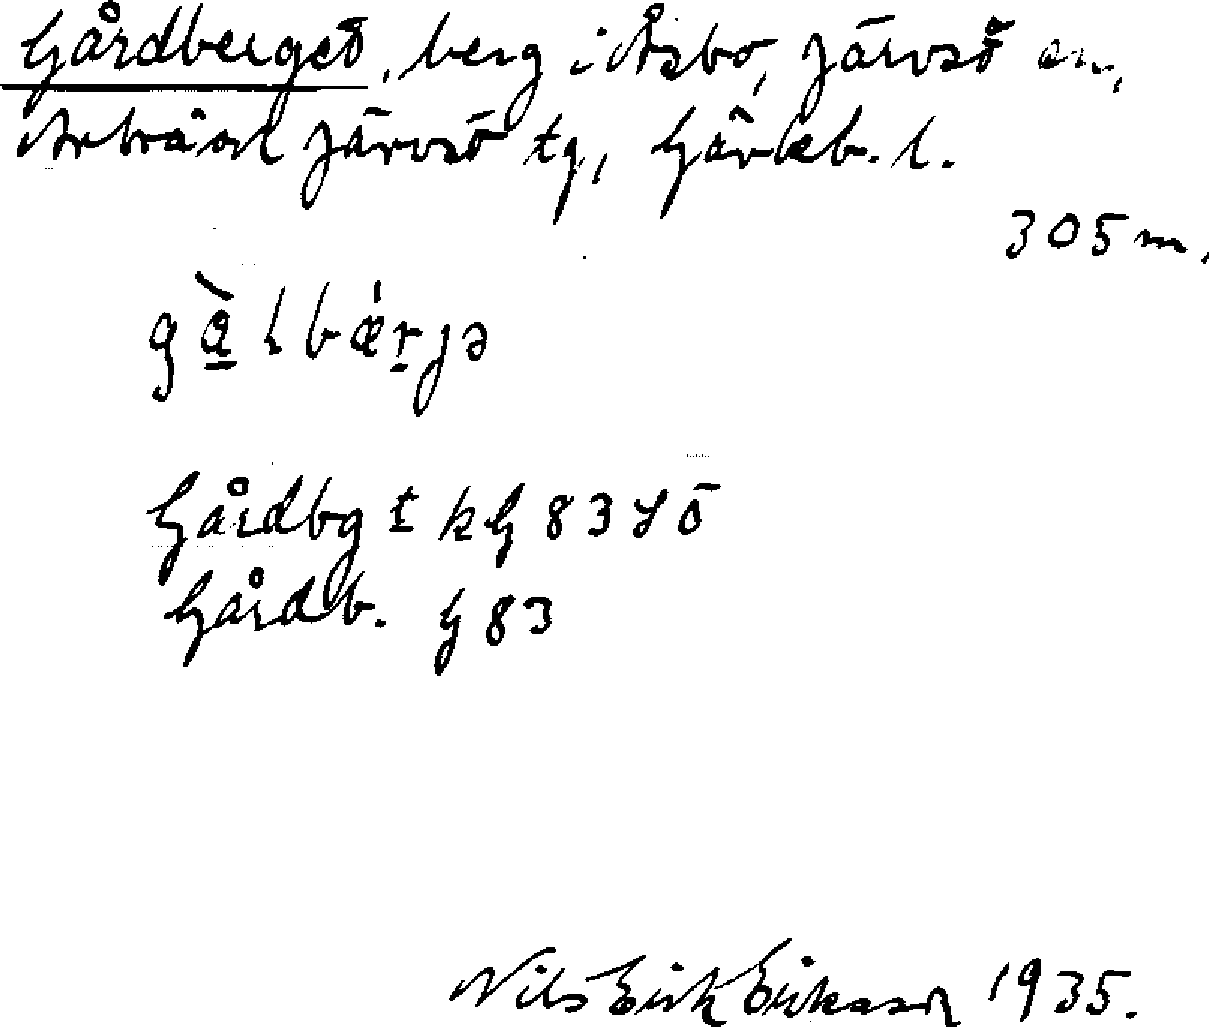 Gårdberget, berg i Åsbo, Järvsö sn,
Arbrå och Järvsö tg, Gävleb. l.
305 m.
Gårdbg t kG 83 SÖ
Gårdb. G 83
Nils Erik Eriksson 1935.